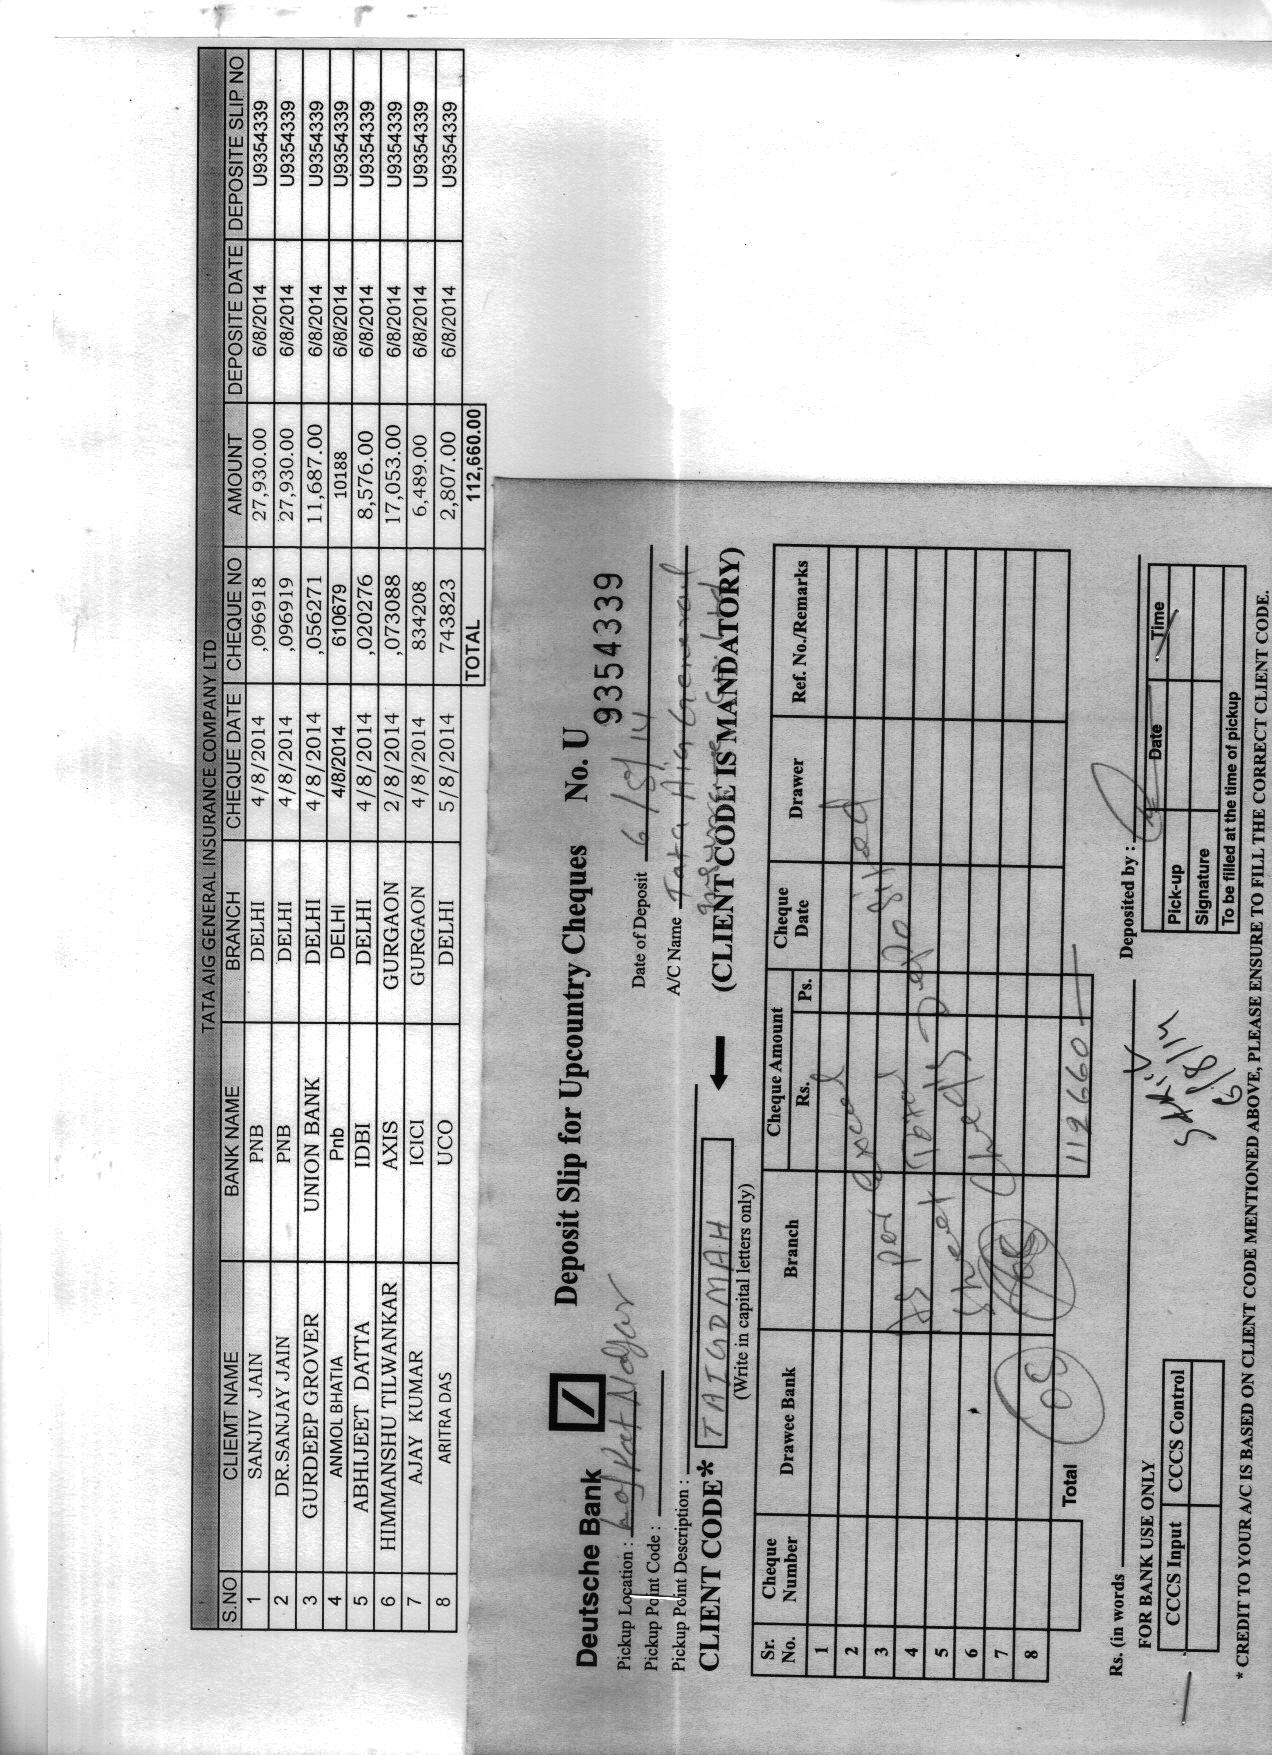 TATA AIG GENERAL INSURANCE COMPANY LTD
S.NO CLIEMT NAME BANK NAME BRANCH CHEQUE DATE CHEQUE NO AMOUNT DEPOSITE DATE DEPOSITE SLIP NO
1 SANJIV JAIN PNB DELHI 4/8/2014 ,096918 27,930.00 6/8/2014 U9354339
2 DR.SANJAY JAIN PNB DELHI 4/8/2014 ,096919 27,930.00 6/8/2014 U9354339
3 GURDEEP GROVER UNION BANK DELHI 4/8/2014 ,056271 11,687.00 6/8/2014 U9354339
4 ANMOL BHATIA Pnb DELHI 4/8/2014 610679 10188 6/8/2014 U9354339
5 ABHIJEET DATTA IDBI DELHI 4/8/2014 ,020276 8,576.00 6/8/2014 U9354339
6 HIMMANSHU TILWANKAR AXIS GURGAON 2/8/2014 ,073088 17,053.00 6/8/2014 U9354339
7 AJAY KUMAR ICICI GURGAON 4/8/2014 834208 6,489.00 6/8/2014 U9354339
8 ARITRA DAS UCO DELHI 5/8/2014 743823 2,807.00 6/8/2014 U9354339
TOTAL 112,660.00
Deutsche Bank Deposit Slip for Upcountry Cheques No. U 9354339
Pickup Location : Lajpat Nagar Date of Deposit 6/8/14
Pickup Point Code : A/C Name Tata Aig General
Pickup Point Description : Insurance Co. Ltd
CLIENT CODE* TAIGDMAH (CLIENT CODE IS MANDATORY)
(Write in capital letters only)
Sr. No. Cheque Number Drawee Bank Branch Cheque Amount Rs. Ps. Cheque Date Drawer Ref. No./Remarks
1
2
3
4
5
6
7
8
As per Excel
Sheet Total Deposited
Cheqs
08
Total 112660
Rs. (in words Deposited by :
FOR BANK USE ONLY
CCCS Input CCCS Control
6/8/14
Date Time
Pick-up
Signature
To be filled at the time of pickup
* CREDIT TO YOUR A/C IS BASED ON CLIENT CODE MENTIONED ABOVE, PLEASE ENSURE TO FILL THE CORRECT CLIENT CODE.